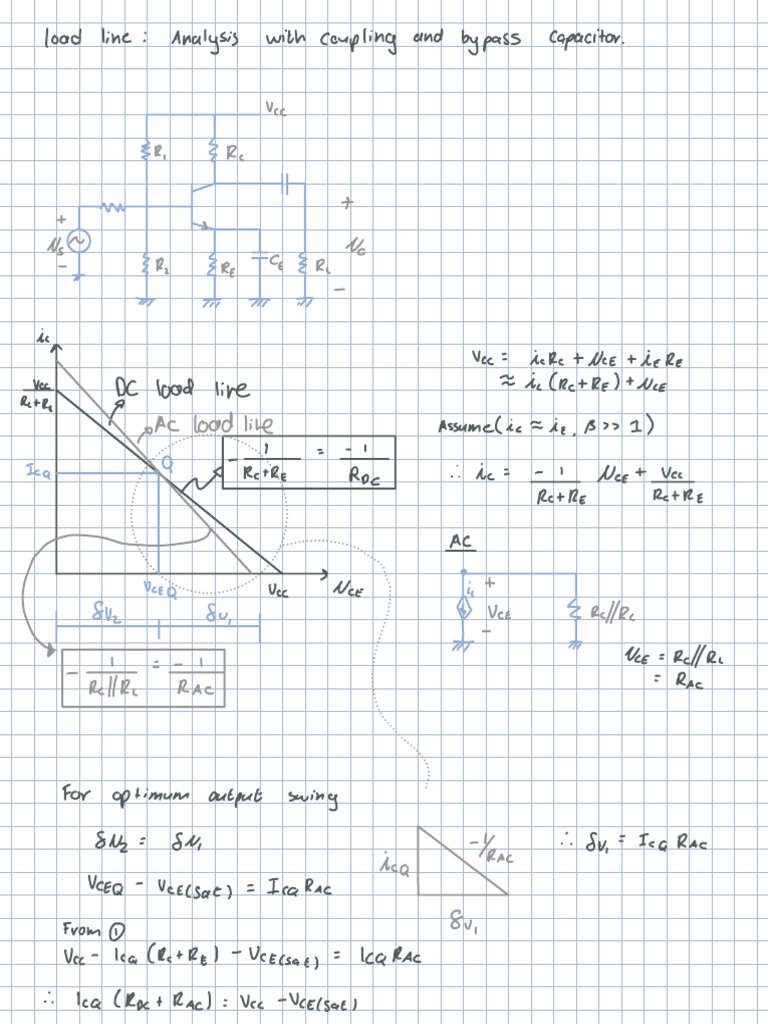 load line: Analysis with coupling and bypass capacitor.
Vcc
R1 Rc
+
+
Vs
−
R2 RE CE RL
Vo
−
ic
Vcc / Rc+RE
DC load line
Ac load line
Q
ICQ
− 1 / Rc+RE = −1 / RDC
VCEQ Vcc VCE
δV2 δV1
− 1 / Rc//RL = − 1 / RAC
Vcc = ic Rc + VCE + iE RE
≈ ic (Rc+RE) + VCE
Assume (ic ≈ iE, β >> 1)
∴ ic = −1 / Rc+RE VCE + Vcc / Rc+RE
AC
ic + VCE − Rc//RL
VCE = Rc//RL
= RAC
For optimum output swing
δV2 = δV1
VCEQ − VCE(sat) = ICQ RAC
From ①
Vcc − ICQ (Rc+RE) − VCE(sat) = ICQ RAC
∴ ICQ (RDC + RAC) = Vcc − VCE(sat)
iCQ
−1/RAC
δV1
∴ δV1 = ICQ RAC